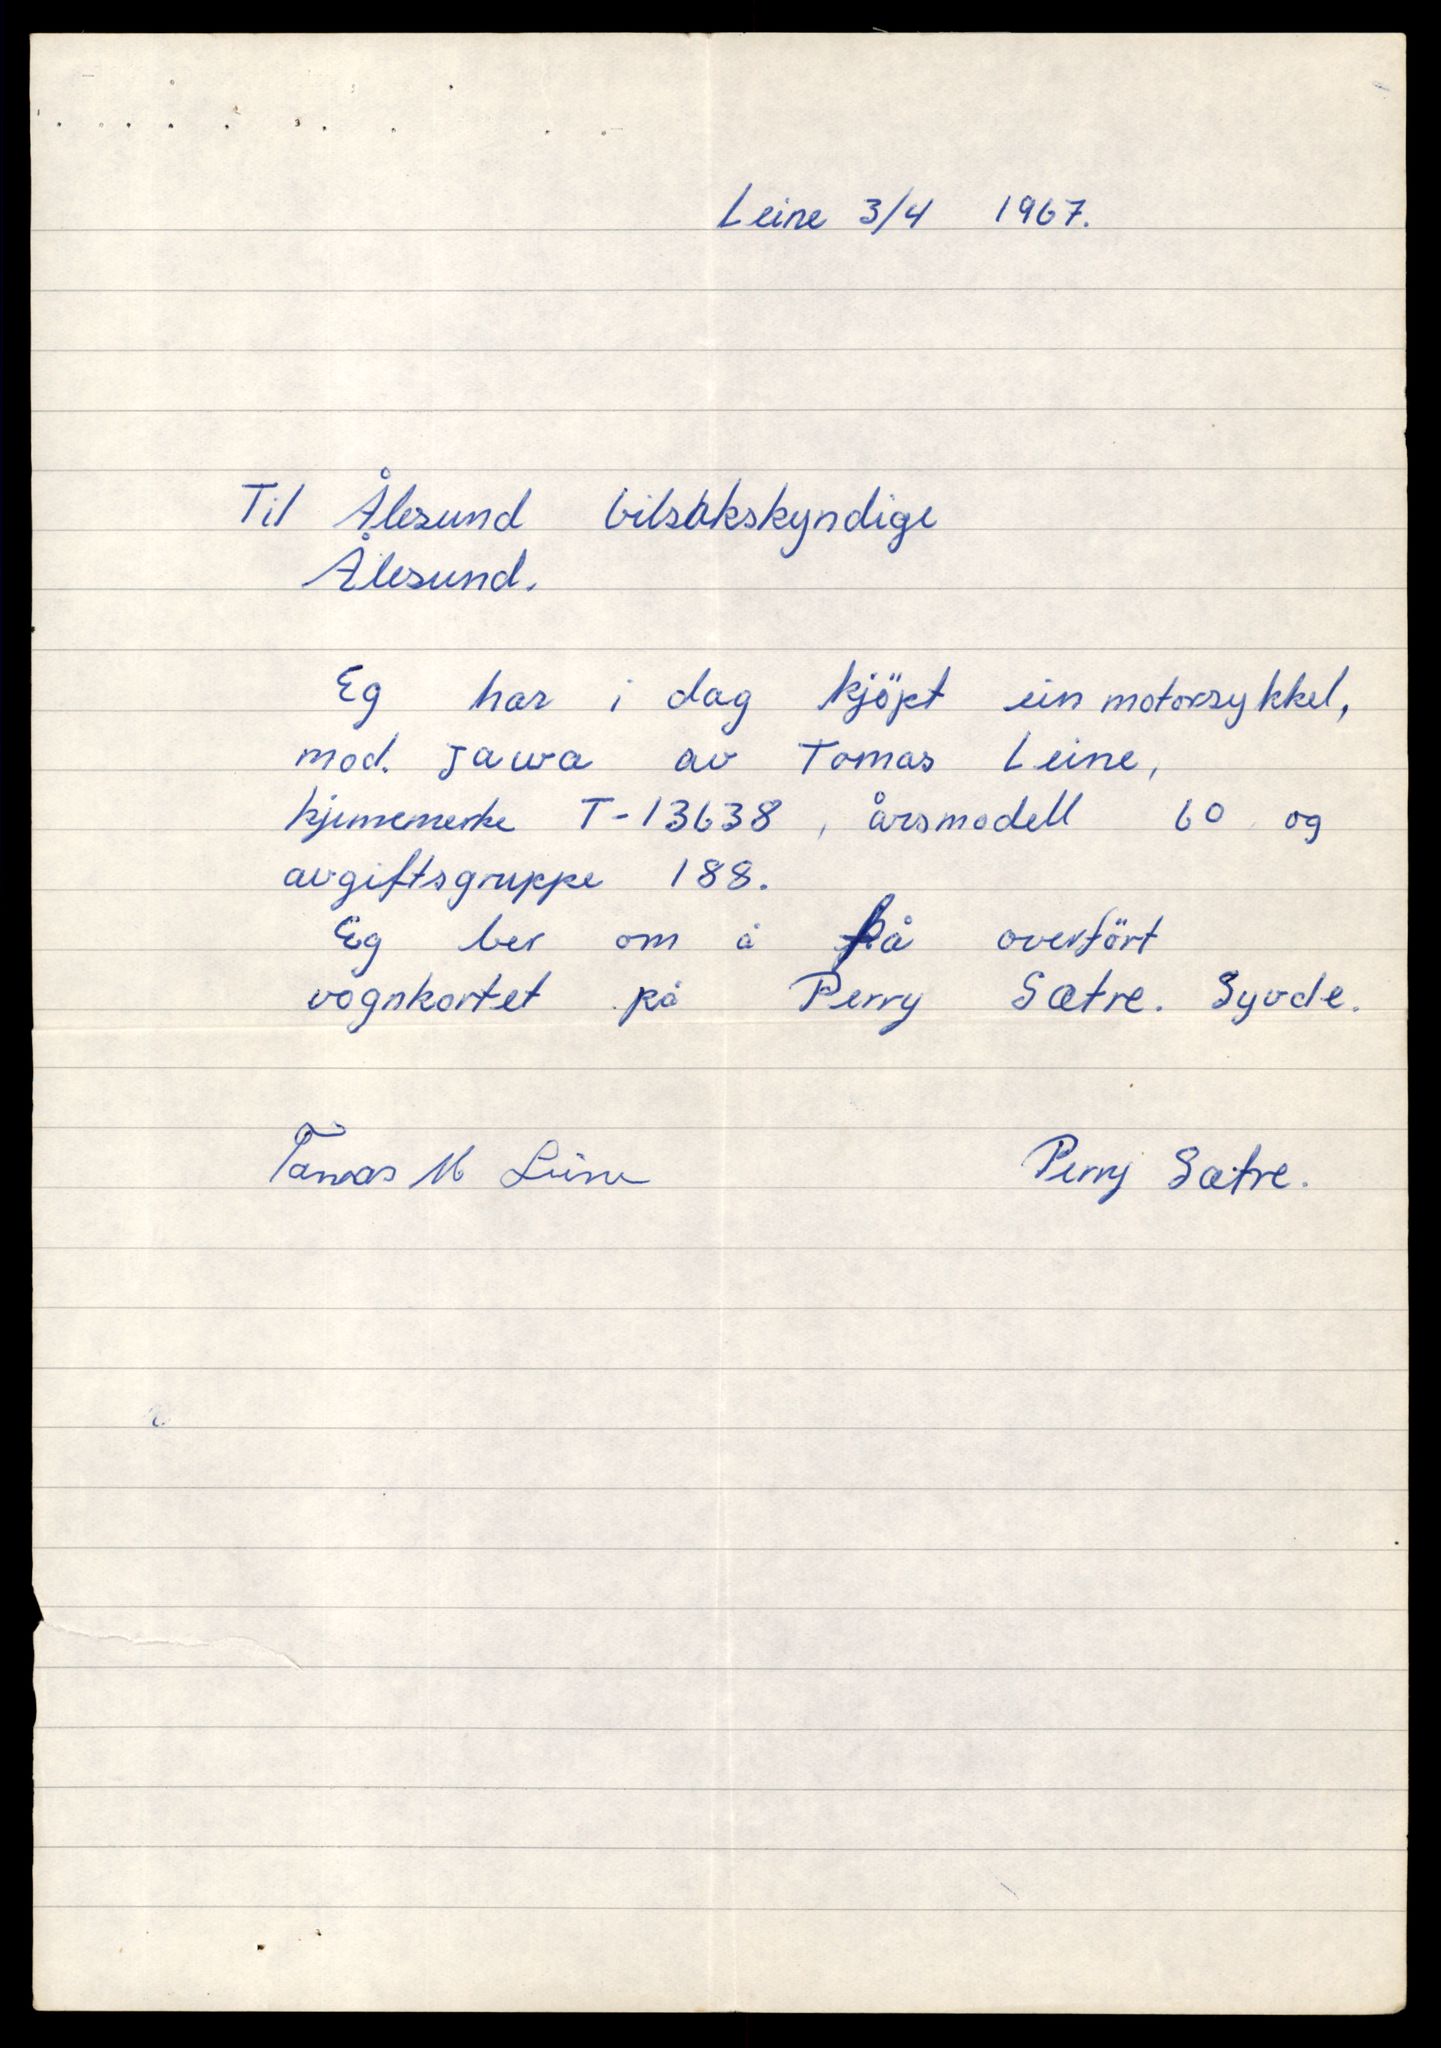 Leine 3/4 1967.
Til Ålesund bilsakskyndige
Ålesund.
Eg har i dag kjöpt ein motorsykkel,
mod. Jawa av Tomas Leine,
kjennemerke T-13638, årsmodell 60 og
avgiftsgruppe 188.
Eg ber om å få overfört
vognkortet på Perry Sætre. Syvde.
Tomas M Leine Perry Sætre.